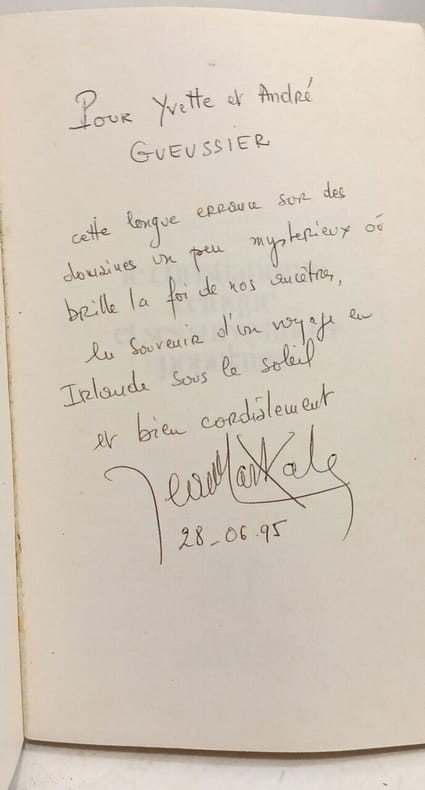 Pour Yvette et André
GUEUSSIER
cette longue errance sur des
domaines un peu mysterieux où
brille la foi de nos ancêtres,
en souvenir d'un voyage en
Irlande sous le soleil
et bien cordialement
Jean Markale
28-06-95